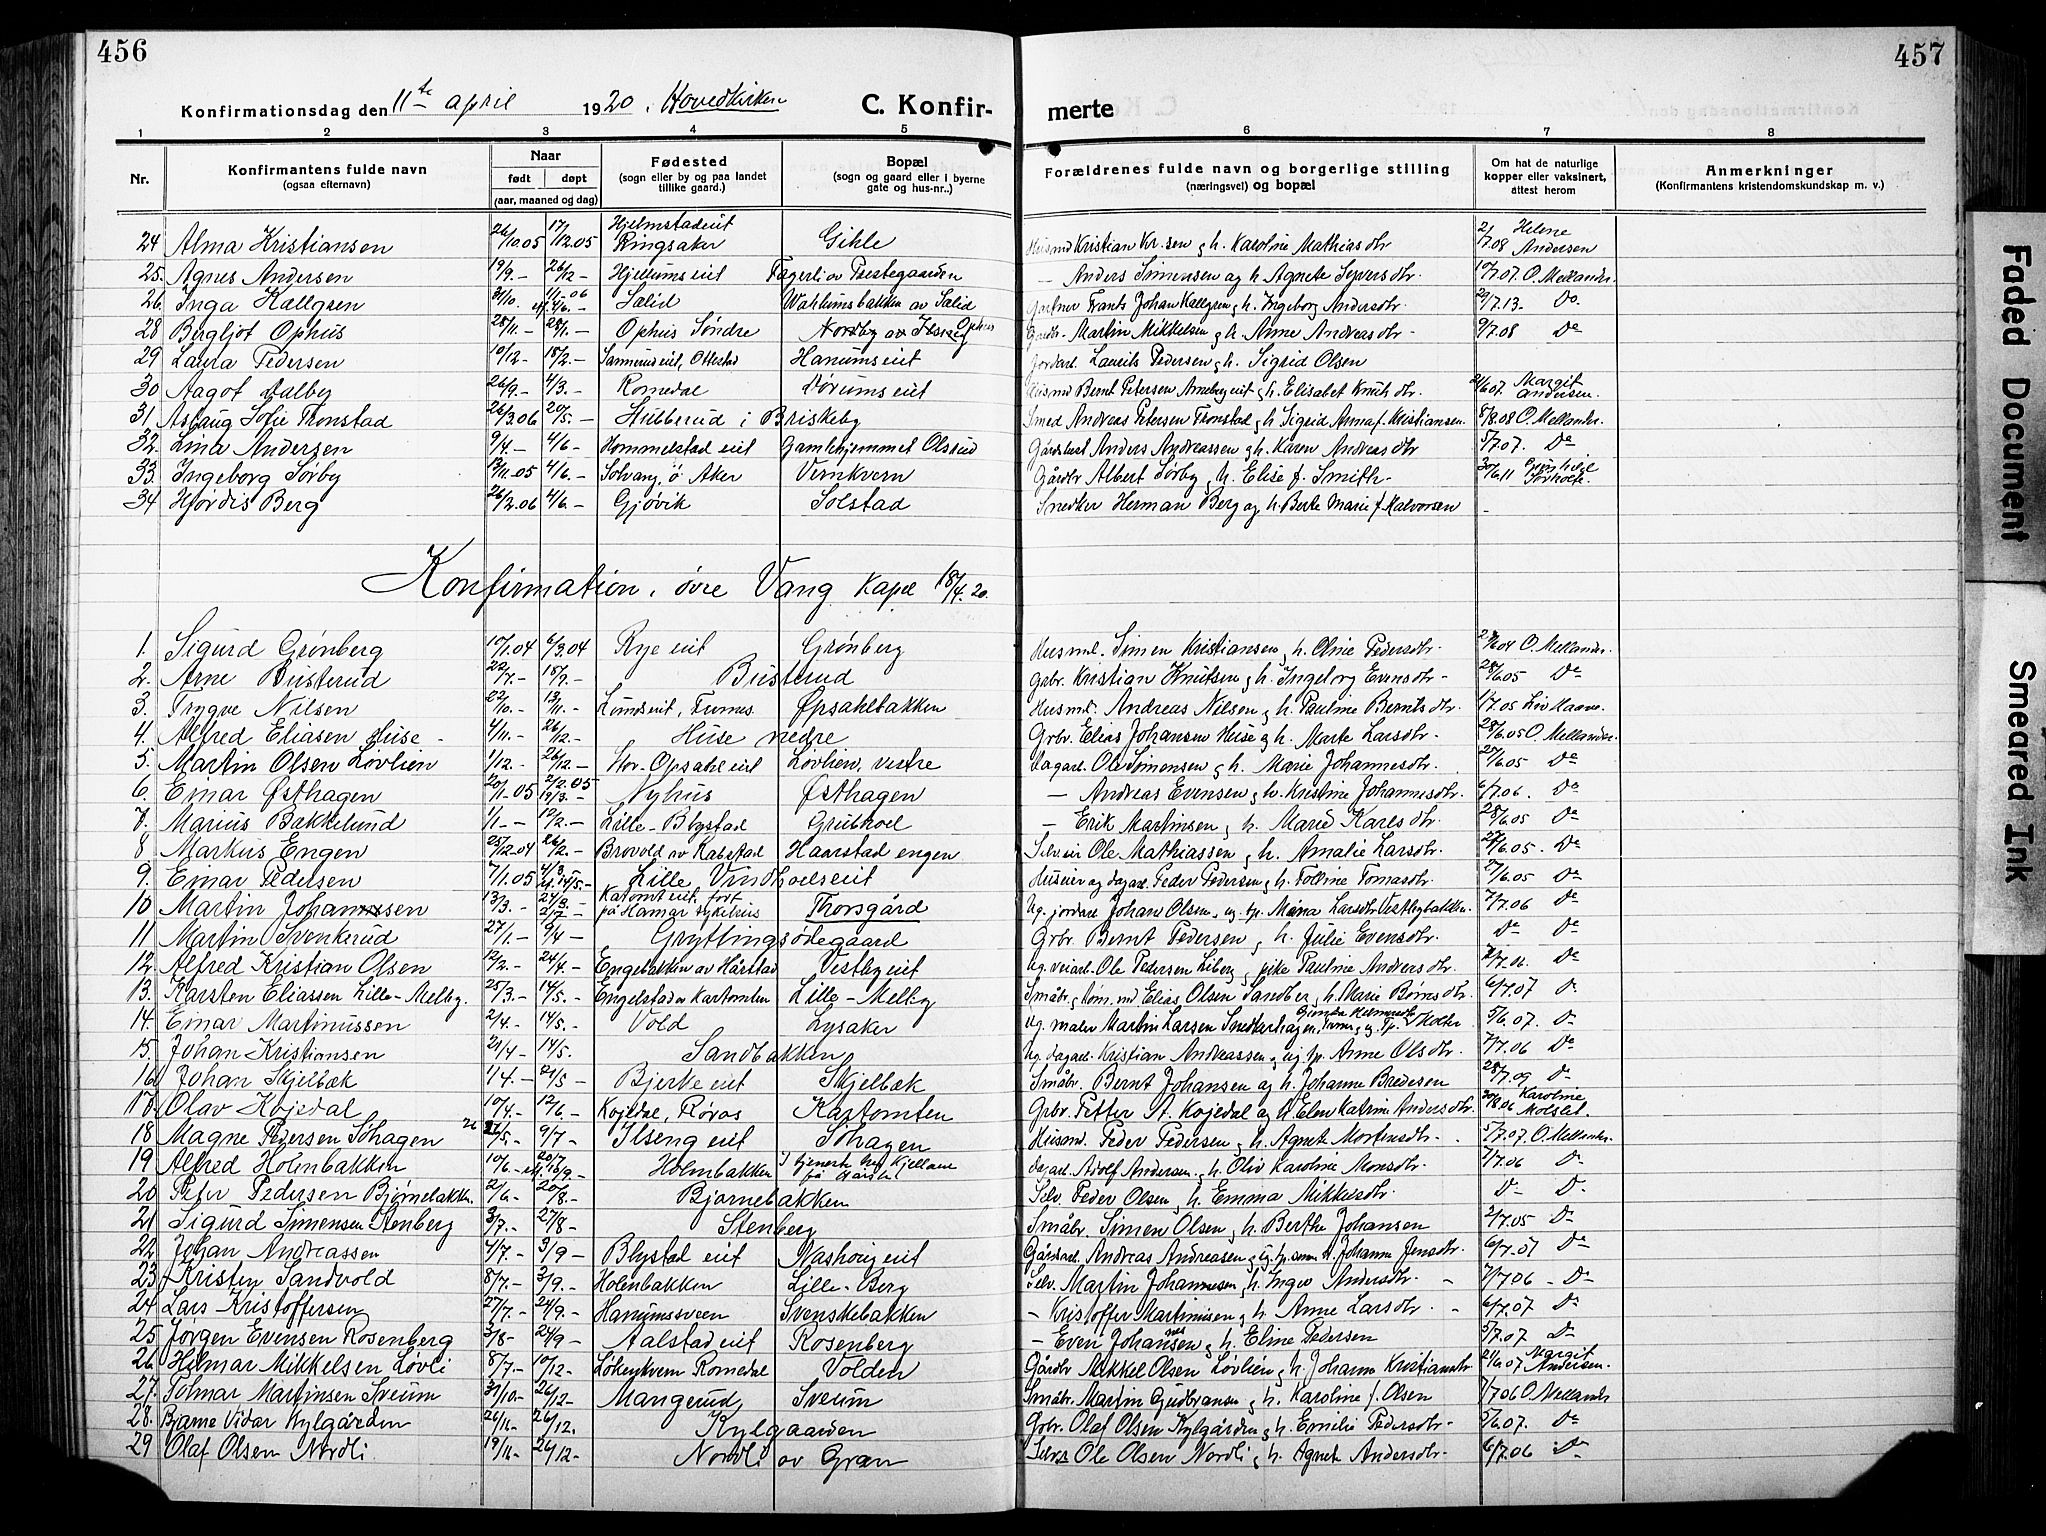 456
457
Konfirmationsdag den 11te april 1920 i Hovedkirken
C. Konfir-
merte
1 2 3 4 5 6 7 8
Nr.
Konfirmantens fulde navn
(ogsaa efternavn)
Naar
født døpt
(aar, maaned og dag)
Fødested
(sogn eller by og paa landet
tillike gaard.)
Bopæl
(sogn og gaard eller i byerne
gate og hus-nr..)
Forældrenes fulde navn og borgerlige stilling
(næringsvei) og bopæl
Om hat de naturlige
kopper eller vaksinert,
attest herom
Anmerkninger
(Konfirmantens kristendomskundskap m. v.)
24 Alma Kristiansen 26/10.05 17/12.05 Hjelmstadeiet Ringsaker Gihle Husmd Kristian Kr.sen g h. Karoline Mathiasdtr 2/7.08 Helene Andersen
25. Agnes Andersen 19/9.- 26/12- Hjellumseiet Fagerli av Prestegaarden - Anders Simensen og h. Agnete Syversdtr. 10/7.07. O. Mellander.
26. Inga Kallgren 31/10. 1/1-06 4/6.- Salid Wahlumsbakken av Salid Gartner Frants Johan Kallgren g h. Ingeborg Andersdtr. 29/7.13. Do.
28 Bergljot Ophus 28/11.- 28/1.- Ophus Søndre Nordby av Ophus Gaardbr. Martin Mikkelsen g h. Anne Andreasdtr- 9/7.08 Do
29 Laura Pedersen 10/12- 18/2.- Sannerudeiet, Ottestad Hanumseiet Jordarb. Laurits Pedersen g h. Sigrid Olsen
30 Aagot Dalby 26/9.- 4/3.- Romedal Dørumseiet Husmd Bernt Petersen Arnebergeiet g h. Elisabet Knutsdtr. 21/6.07. Margit Andersen.
31. Aslaug Sofie Tronstad 26/3.06 20/5.- Hubberud i Briskeby Smed Andreas Petersen Tronstad g h. Sigrid Anna f. Kristiansen. 5/8.08 O. Mellander.
32. Lina Andersen 9/4.- 4/6- Hommelstad eiet Gamlehjemmet Olsrud Gårdsbest Anders Andreassen g h. Karen Andreasdtr 5/7.07. Do
33. Ingeborg Sørby 12/11.05 4/6.- Solvang, ø. Aker Vernkvern Gårdbr Albert Sørby g h. Elise f. Smith- 30/6.11
34 Hjørdis Berg 26/2.06 4/6.- Gjøvik Solstad Snedker Herman Berg og h. Berte Marie f. Halvorsen -
Konfirmation i øvre Vang Kapel 18/4.20.
1. Sigurd Grønberg 10/1.04 6/3.04 Ryeeiet Grønberg Husmd. Simen Kristiansen g h. Oline Pedersdtr. O. Mellander.
2. Arne Busterud 22/7.- 18/9.- Busterud Grbr. Kristian Knutsen g h. Ingeborg Evensdtr- 28/6.05 Do
3. Trygve Nilsen 22/10.- 13/11.- Lundseiet, Furnes. Øpsahlbakken Husmd. Andreas Nilsen g h. Pauline Berntsdtr. 1/7.05
4. Alfred Eliasen Huse - 4/11.- 26/12.- Huse nedre Grbr. Elias Johansen Huse g h. Marte Larsdtr. 28/6.05 O. Mellander.
5. Martin Olsen Løvlien 1/12.- 26/12- Hov-Opsahleiet Løvlien, vestre Dagarb. Ole Simensen g h. Marie Johannesdtr. 27/6.05 Do
6. Einar Østhagen 20/1-05 2/2.05 19/3.- Nyhus Østhagen - Andreas Evensen g h. Kristine Johannesdtr. 6/7.06. Do
7. Marius Bakkelund 1/1.- 19/2.- Lille-Blystad Grubhoel - Erik Martinsen g h. Marie Karlsdtr. 28/6.05 Do
8 Markus Engen 25/12.04 26/2.- Brovold av Kabstad Haarstadengen Selveier Ole Mathiassen g h. Amalie Larsdtr. 27/6.05. Do
9. Einar Pedersen 7/1.05 4/3.- 14/5.- Lille Vindhoelseiet Huseier og dagarb. Peder Pedersen g h. Folline Tomasdtr. 7/6.05 Do
10. Martin Johannessen 13/3.- 2/7- Kartomteiet, født på Hamar sykehus Thorsgård Ug. jordarb Johan Olsen, ug. tp. Mina Larsdtr Vestbybakken. 7/7.06 Do
11 Martin Svenkerud 27/1.- 9/4- Gryttingsødegaard Grbr. Bernt Pedersen g h. Julie Evensdtr. Do Do
12. Alfred Kristian Olsen 12/2.- 24/4.- Engebakken av Hårstad Vestbyeiet Ug. veiarb. Ole Pedersen Liberg g pike Pauline Andersdtr. 7/7.06. Do
13. Karsten Eliassen Lille-Melby. 25/3.- 14/5.- Engelstad av Kartomten Lille-Melby Småbr. g tøm.md Elias Olsen Sandber g h. Marie Børresdtr. 6/7.07 Do
14. Einar Martinussen 2/4.- 14/5.- Vold Lysaker Ug. maler Martin Larsen Snekkerhagen, 5/6.07. Do
15. Johan Kristiansen 21/4- 14/5. Sandbakken Ug. dagarb. Kristian Andreassen g ug. tp. Anne Olsdtr. 7/7.06 Do
16 Johan Skjelbæk 1/4.- 21/5- Bjerkeeiet Skjelbæk Småbr. Bernt Johansen og h. Johanne Bredesen 28/7.09 Do
17. Olav Kojedal 10/4.- 12/6.- Kojedal, Røros Kartomten Grbr. Petter St. Kojedal og h. Elen Katrine Andersdtr. 30/8.06 Karoline Molslet.
18 Magne Pedersen Søhagen 26/5.- 9/7- Ilsengeiet Søhagen Husmd. Peder Pedersen g h. Agnete Mortensdtr- 5/7.07. O. Mellander.
19 Alfred Holmbakken 10/6.- 20/7 16/9.- Holmbakken Dagarb. Adolf Andersen g h. Oliv Karoline Monsdtr. 7/7.06 Do
20 Peter Pedersen Bjørnebakken. 2/6- 20/8.- Bjørnebakken Selv. Peder Olsen g h. Emma Mikkelsdtr. Do Do
21 Sigurd Simensen Stenberg 3/7.- 27/8- Stenberg Småbr. Simen Olsen g h. Berthe Johansen 2/7.05 Do
22. Johan Andreassen 4/7.- 3/9- Blystadeiet Nashougeiet Gårdarb. Andreas Andreasen g h. Johanne Jensdtr. 6/7.07 Do
23. Kristen Sandvold 8/7.- 3/9.- Holmbakken Lille-Berg Selv. Martin Johannesen g h. Inger Andersdtr. - 7/7.06 - Do
24 Lars Kristoffersen 27/7.- 24/9.- Hanumssveen Svenskebakken - Kristoffer Martinusen g h. Anne Larsdtr. - 6/7.07 Do
25 Jørgen Evensen Rosenberg 3/8- 24/9- Aalstadeiet Rosenberg - Even Johansen g h. Eline Pedersen 5/7.07 Do
26. Hilmar Mikkelsen Løvli 8/7.- 10/12.- Løkenkvern Romedal Volden Gårdbr Mikkel Olsen Løvlien g h. Johanne Kristiansdtr. 21/6.07 Margit Andersen.
27. Tolmar Martinsen Sveum 31/10.- 26/12- Mangerud Sveum Småbr. Martin Gudbransen g h. Karoline f. Olsen 7/7.06 O. Mellander
28. Bjarne Vidar Kylgården 26/11.- 26/12. Kylgaarden Grbr. Olaf Olsen Kylgården g h. Emilie Pedersdtr- 5/6.07. Do
29 Olaf Olsen Nordli 19/11- 26/12- Nordli av Gran Selv. Ole Olsen Nordli g h. Agnete Andersdtr- 6/7.06 Do
Faded Document
Smeared Ink